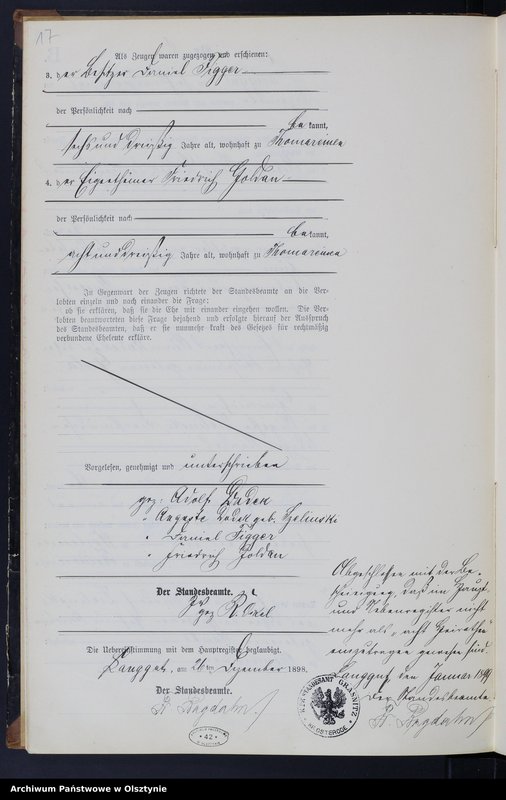 17
Als Zeugen waren zugezogen und erschienen:
3. der Besitzer Samuel Figger
der Persönlichkeit nach
be kannt,
sechsunddreißig Jahre alt, wohnhaft zu Thomareinen
4. der Eigenthümer Friedrich Goldan
der Persönlichkeit nach
be kannt,
achtunddreißig Jahre alt, wohnhaft zu Thomareinen
In Gegenwart der Zeugen richtete der Standesbeamte an die Ver-
lobten einzeln und nach einander die Frage:
ob sie erklären, daß sie die Ehe mit einander eingehen wollen. Die Ver-
lobten beantworteten diese Frage bejahend und erfolgte hierauf der Ausspruch
des Standesbeamten, daß er sie nunmehr kraft des Gesetzes für rechtmäßig
verbundene Eheleute erkläre.
Vorgelesen, genehmigt und unterschrieben
gez: Adolf
" Auguste geb.
" Samuel Figger
" Friedrich Goldan
Der Standesbeamte.
gez
Die Uebereinstimmung mit dem Hauptregister beglaubigt.
Langgut, am Dezember 1898.
Der Standesbeamte.
Abgeschlossen mit der Be-
scheinigung, daß im Haupt-
und Nebenregister nicht
mehr als „acht Heirathen"
eingetragen worden sind.
Langgut, den Januar 1899
Der Standesbeamte
* 42 *
Archiwum Państwowe w Olsztynie